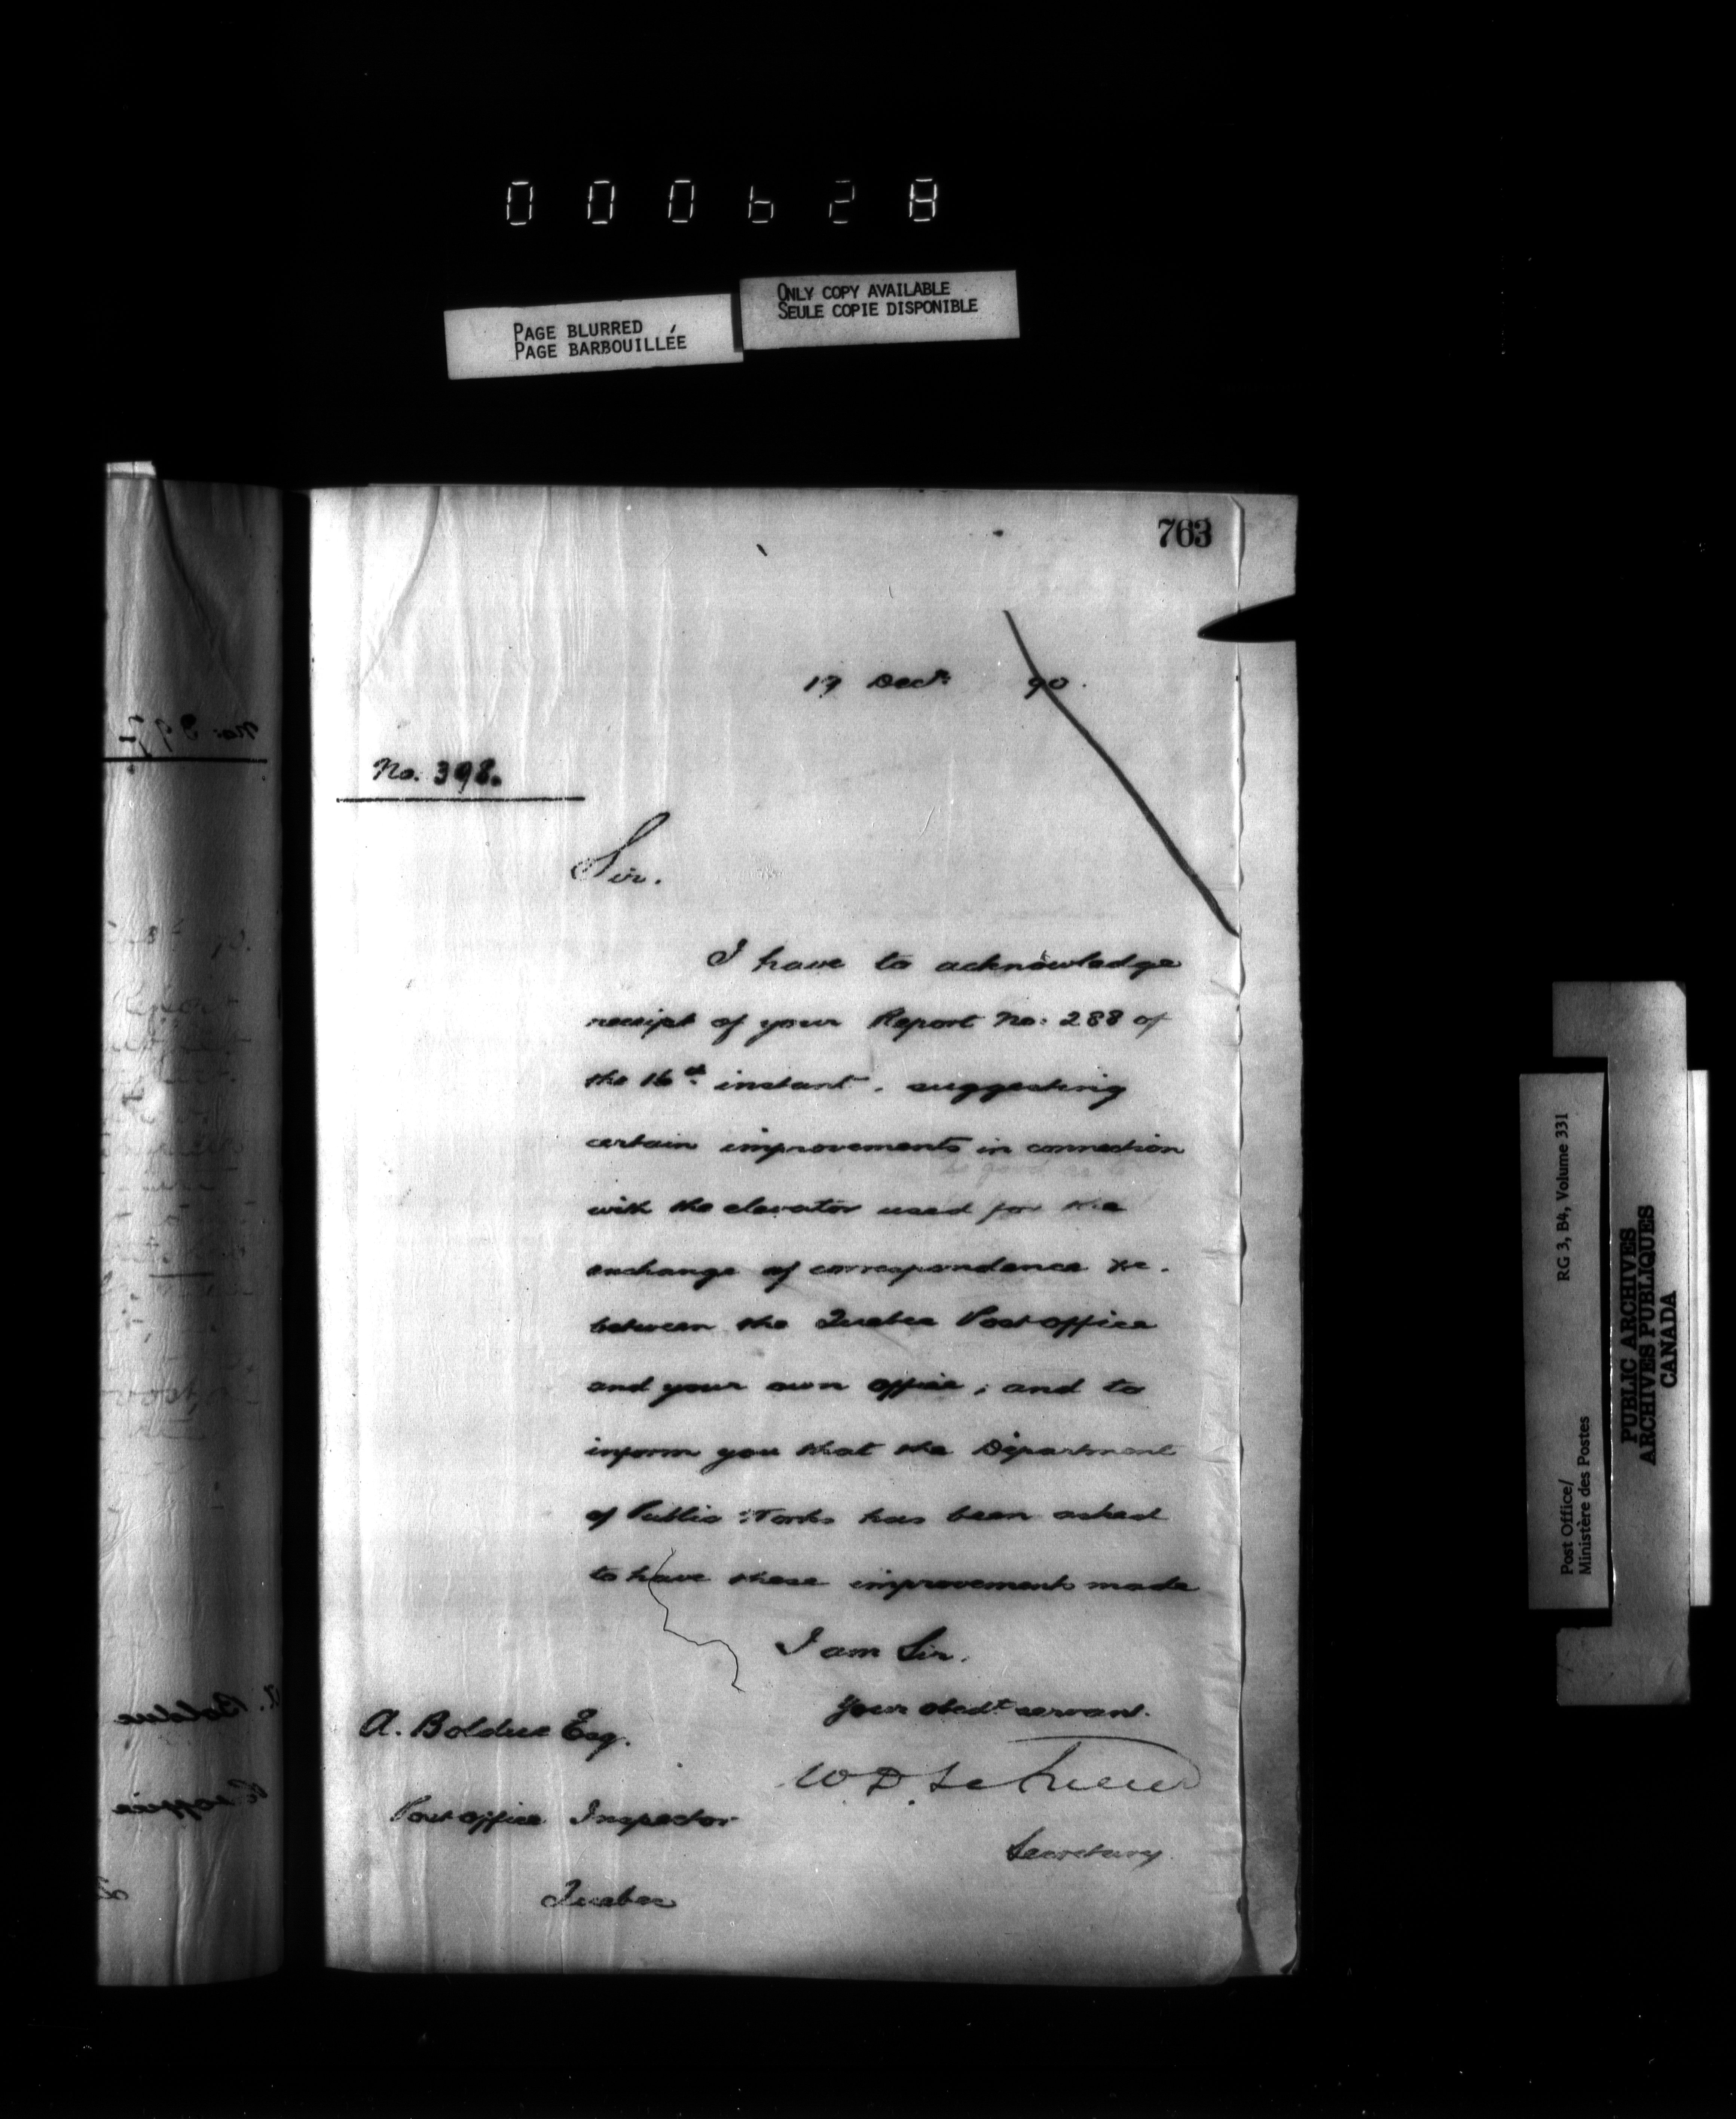 000628
PAGE BLURRED
PAGE BARBOUILLÉE
ONLY COPY AVAILABLE
SEULE COPIE DISPONIBLE
763
19 Decr. 90.
No. 398.
Sir.
I have to acknowledge
receipt of your Report No: 288 of
the 16th instant, suggesting
certain improvements in connection
with the elevator used for the
exchange of correspondence &c.
between the Quebec Post office
and your own office; and to
inform you that the Department
of Public Works has been asked
to have these improvements made
I am Sir.
Your obedt servant.
W D LeSueur
Secretary.
A. Bolduc Esq.
Post office Inspector
Quebec
Post Office/
Ministère des Postes
RG 3, B4, Volume 331
PUBLIC ARCHIVES
ARCHIVES PUBLIQUES
CANADA